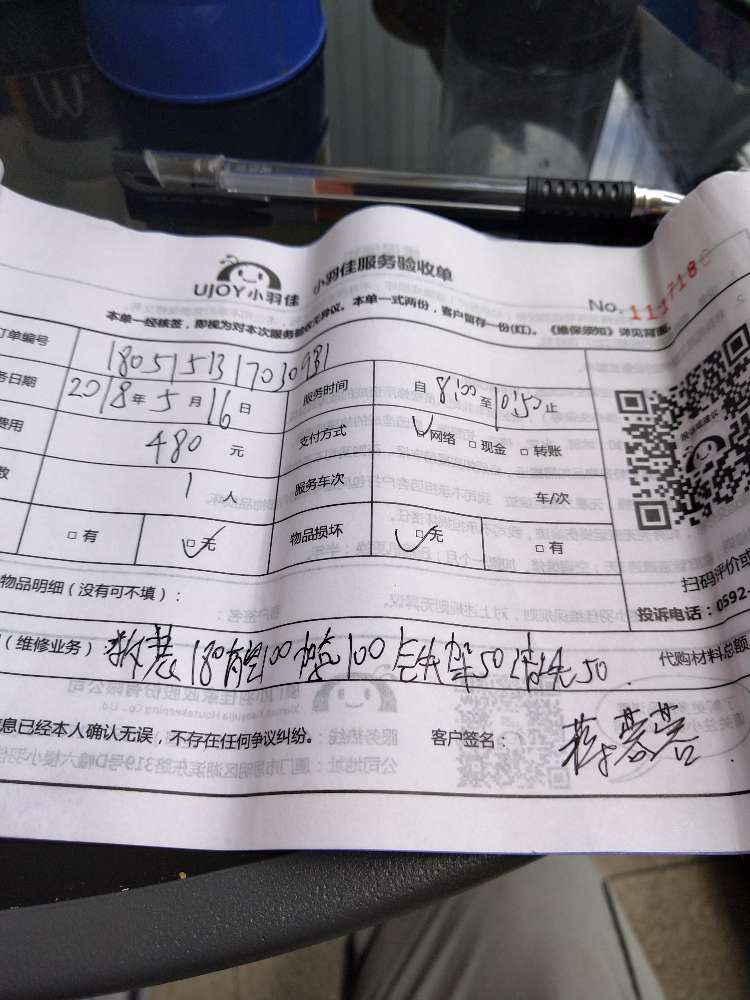 UJOY小羽佳 小羽佳服务验收单
No. 111718
本单一经核签，即视为对本次服务验收无异议。本单一式两份，客户留存一份(红)。《维保须知》详见背面。
订单编号 1805151317030981
务日期 2018年5月16日 服务时间 自8:00至10:50止
费用 480元 支付方式 □网络 □现金 □转账
数 1人 服务车次 车/次
□有 □无 物品损坏 □无 □有
扫码评价或
物品明细（没有可不填）：
投诉电话：0592-
（维修业务） 拆装180 100 加氟100 支架50 清洗50 代购材料总额
息已经本人确认无误，不存在任何争议纠纷。 客户签名：